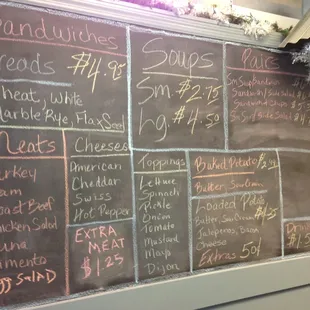 Sandwiches
Breads $4.95
Wheat, White
Marble Rye, Flax Seed
Meats
Turkey
Ham
Roast Beef
Chicken Salad
Tuna
Pimento
Egg Salad
Cheeses
American
Cheddar
Swiss
Hot Pepper
EXTRA
MEAT
$1.25
Soups
Sm $2.75
Lg $4.50
Toppings
Lettuce
Spinach
Pickle
Onion
Tomato
Mustard
Mayo
Dijon
Pairs
Baked Potato
Butter, Sour Cream
Loaded Potato
Butter, Sour Cream
Jalapenos, bana
Cheese
Extras 50¢